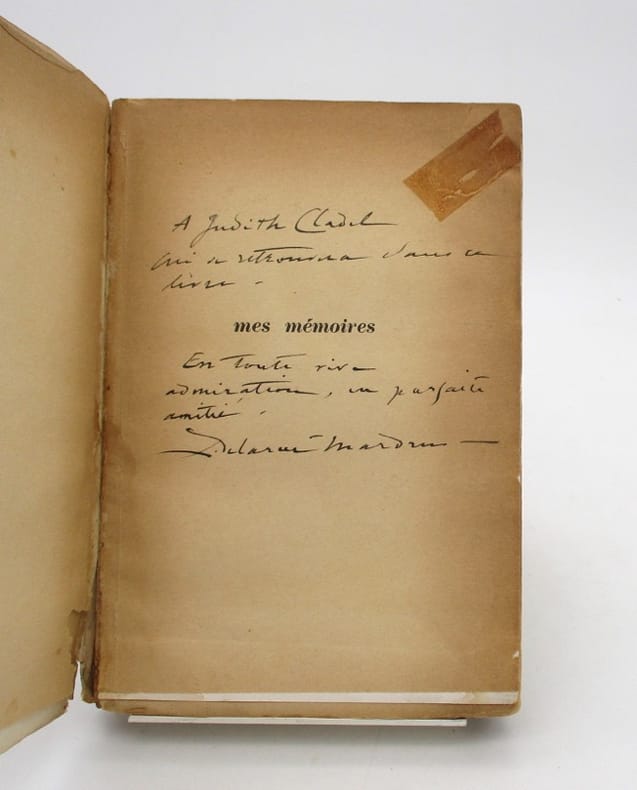 A Judith Cladel
qui se retrouvera dans ce
livre -
mes mémoires
En toute vive
admiration, en parfaite
amitié.
L. Delarue Mardrus —